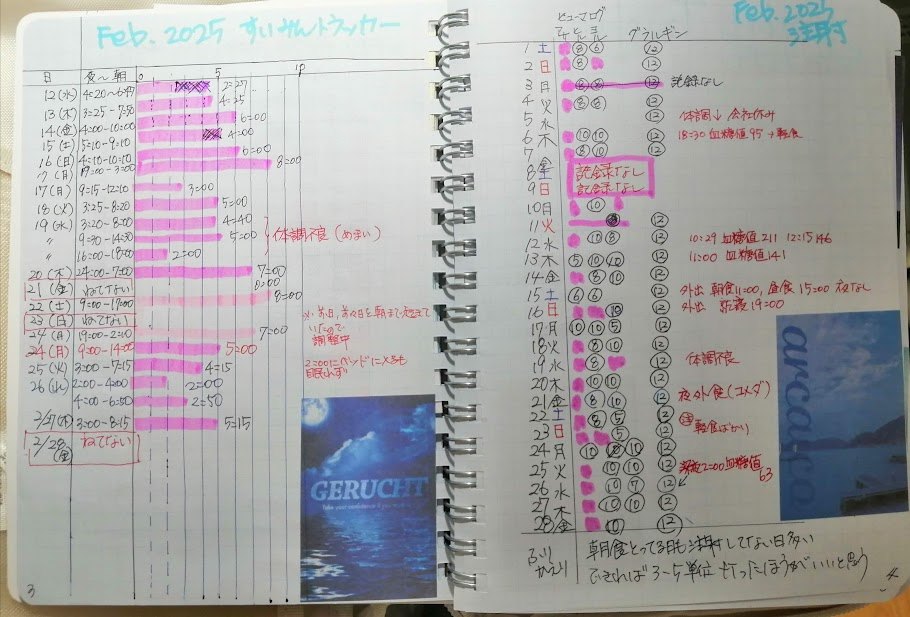 Feb. 2025 すいみんトラッカー
日 夜～朝 0 5 10
12(水) 4:20～6:47 2:27
4:25
13(木) 3:25-7:50
14(金) 4:00-10:00 6:00
4:00
15(土) 5:10-9:10
16(日) 4:10-10:10 6:00
17(月) 19:00-3:00 8:00
17(月) 9:15-12:10 3:00
18(火) 3:25-8:20 5:00
19(水) 3:20-8:00 4:40
〃 9:30-14:30 5:00
体調不良(めまい)
〃 16:00-18:00 2:00
20(木) 24:00-7:00 7:00
21(金) ねてない
22(土) 9:00-19:00 8:00
23(日) ねてない
19:00-2:10 7:00
24(月) 9:00-14:00 5:00
調整中
25(火) 3:00-7:15 4:15
26(水) 2:00-4:00 2:00
4:00-6:50 2:50
2/27(木) 3:00-8:15 5:15
2/28(金) ねてない
GERUCHT
3
Feb. 2025
注射
ヒューマログ
アサ ヒル ヨル グラルギン
1 土 8 6 12
2 日 8 12
3 月 8 8 12 記録なし
4 火 8 8 12
5 水 12 体調↓ 会社休み
6 木 10 10 12 18:30 血糖値95→軽食
7 金 8 10 12
8 土 記録なし
9 日 記録なし
10 月 10
11 火 12
12 水 10 8 12 10:29 血糖値211 12:15 146
13 木 5 10 10 12 11:00 血糖値141
14 金 8 10 12
15 土 6 6 12 外出 朝食11:00, 昼食15:00 夜なし
16 日 10 12 外出 19:00
17 月 10 10 5 12
18 火 8 10 12
19 水 8 12 体調不良
20 木 10 10 12
21 金 8 10 12 夜外食(コメダ)
22 土 8 5 12 軽食ばかり
23 日 5 12
24 月 10 10 12
25 火 10 10 12 2:00血糖値63
26 水 10 7 12
27 木 10 10 12
28 金 10 12
arcoasco
ふりかえり
朝食とってる日も注射してない日多い
できれば3～5単位打ったほうがいいと思う
4